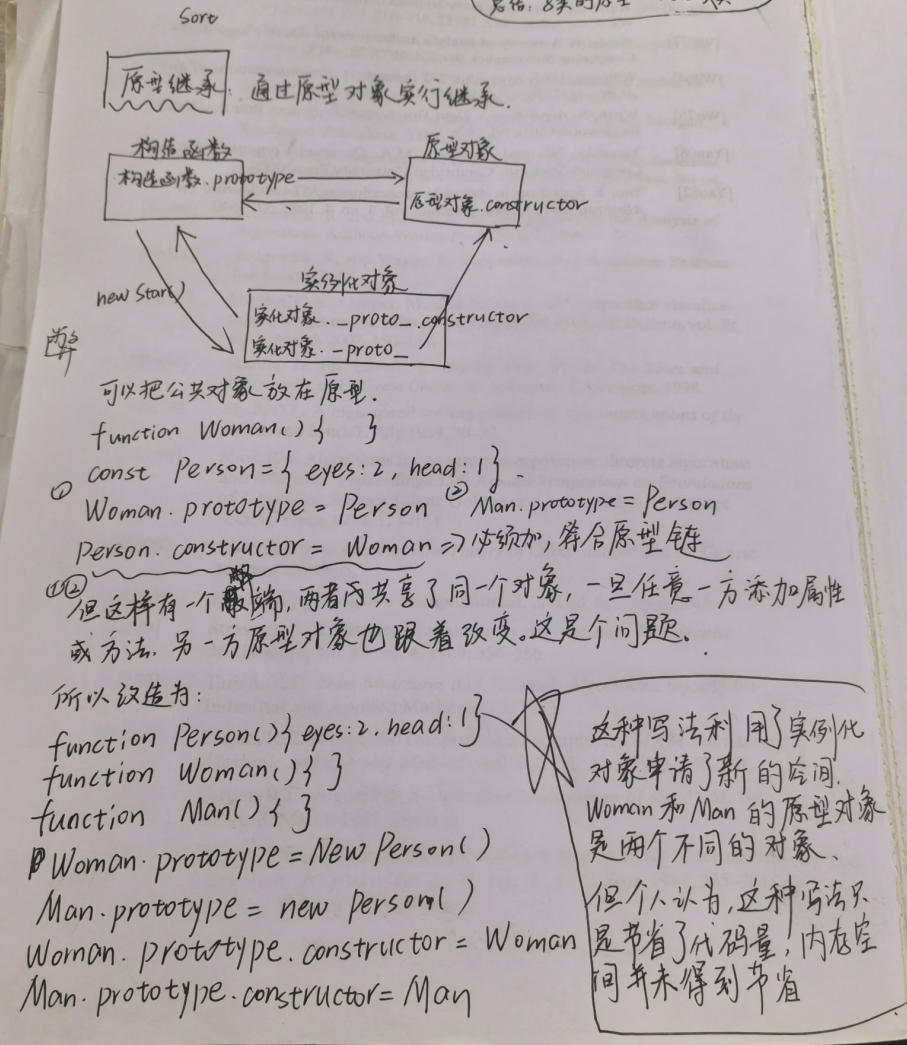 Sort
原型继承: 通过原型对象实行继承.
构造函数
原型对象
构造函数.prototype
原型对象.constructor
new Star()
实例化对象
实化对象._proto_.constructor
实化对象._proto_
可以把公共对象放在原型.
function Woman(){ }
① const Person={ eyes:2, head:1}
Woman.prototype = Person ② Man.prototype = Person
Person.constructor = Woman => 必须加,符合原型链
①② 但这样有一个 端,两者 共享了同一个对象,一旦任意一方添加属性
或方法.另一方原型对象也跟着改变。这是个问题.
所以改造为:
function Person(){ eyes:2.head:1}
function Woman(){ }
function Man(){ }
Woman.prototype = New Person()
Man.prototype = new Person()
Woman.prototype.constructor = Woman
Man.prototype.constructor= Man
这种写法利用了实例化
对象申请了新的 间.
Woman和Man的原型对象
是两个不同的对象、
但个人认为,这种写法只
是节省了代码量,内存空
间并未得到节省